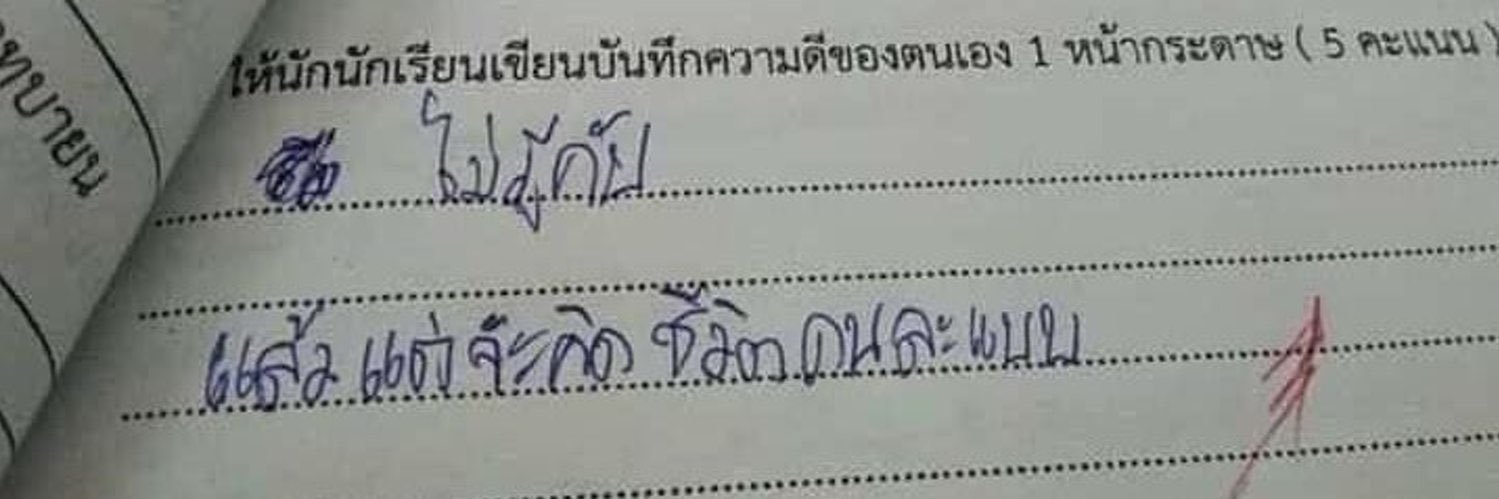 ทบายน
ให้นักนักเรียนเขียนบันทึกความดีของตนเอง 1 หน้ากระดาษ ( 5 คะแนน )
ไม่รู้คับ
แล้วแต่จะคิด ชีวิตคนละแบบ